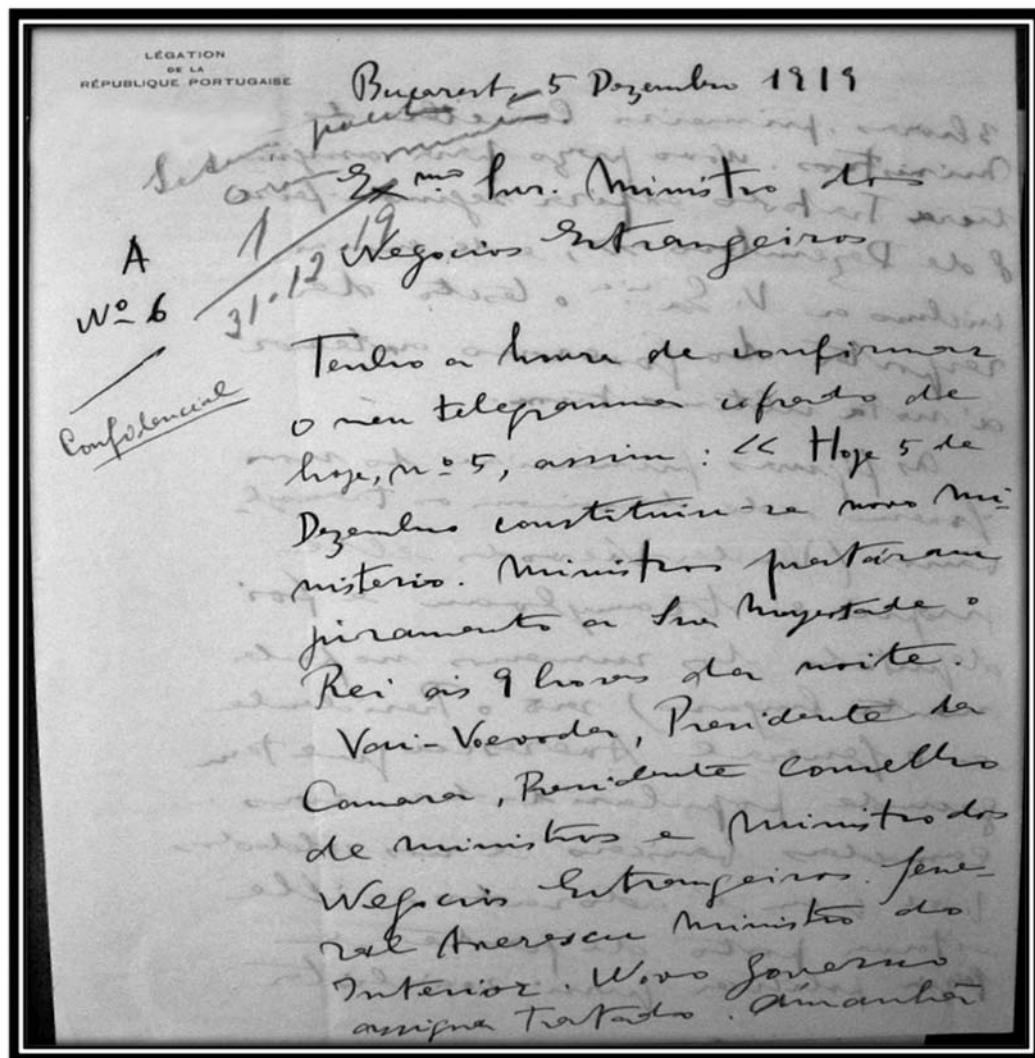 LÉGATION
DE LA
RÉPUBLIQUE PORTUGAISE
Bucarest, 5 Dezembro 1919
Exmo Snr. Ministro dos
Negocios Estrangeiros
A
Nº 6
1
31.12.19
Confidencial
Tenho a honra de confirmar
o meu telegramma cifrado de
hoje, nº 5, assim: << Hoje 5 de
Dezembro constituiu-se novo mi-
nisterio. Ministros prestáram
juramento a Sua Magestade o
Rei ás 9 horas da noite.
Vai-Voevoda, Presidente da
Camara, Presidente Conselho
de ministros e Ministro dos
Negocios Estrangeiros. Gene-
ral Averescu Ministro do
Interior. Novo Governo
assigna Tratado. Amanhã